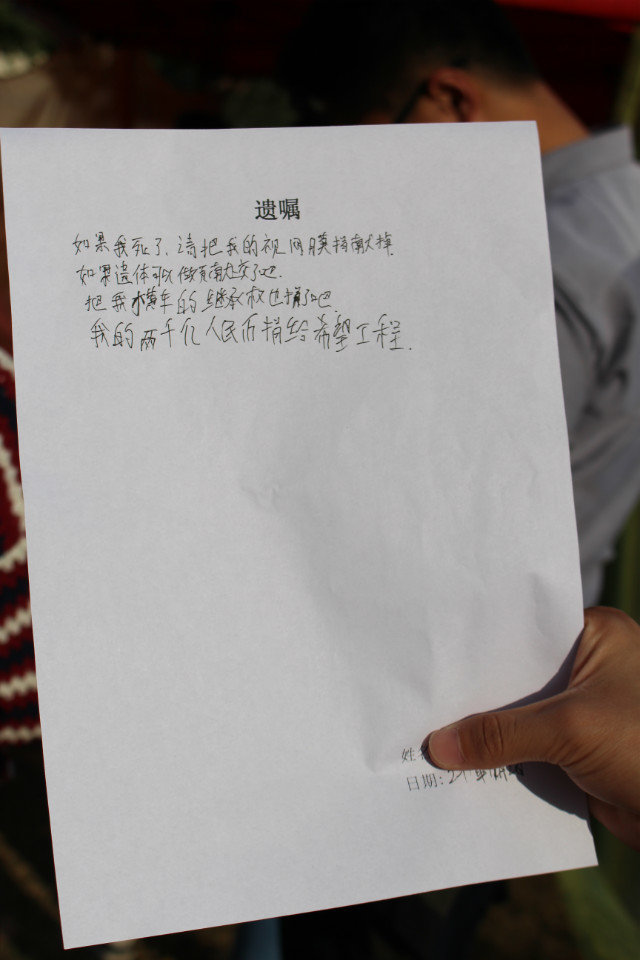 遗嘱
如果我死了、请把我的视网膜捐献掉.
如果遗体可以做贡献就交了吧.
把我的继承权也捐了吧.
我的两千亿人民币捐给希望工程.
姓
日期: